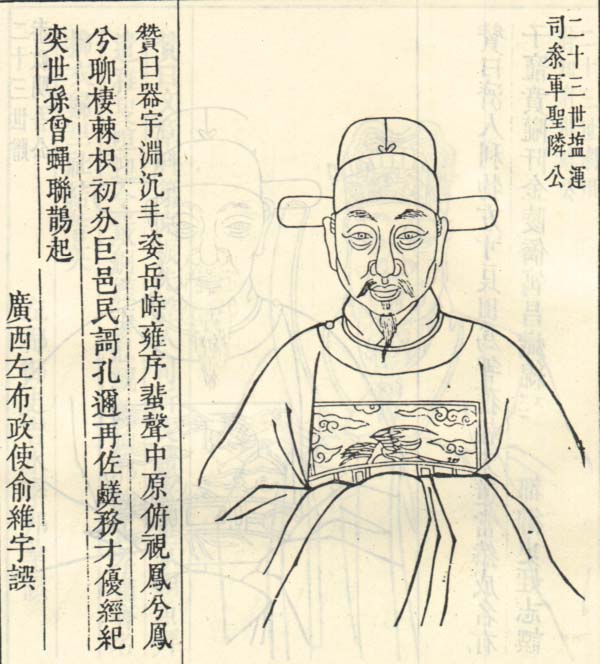 二十三世塩運
司叅軍聖隣公
贊曰器宇淵沉丰姿岳峙雍序蜚聲中原俯視鳳兮鳳
兮聊棲棘枳初分巨邑民謌孔邇再佐鹺務才優經紀
奕世孫曾蟬聯鵲起
廣西左布政使俞維宇譔